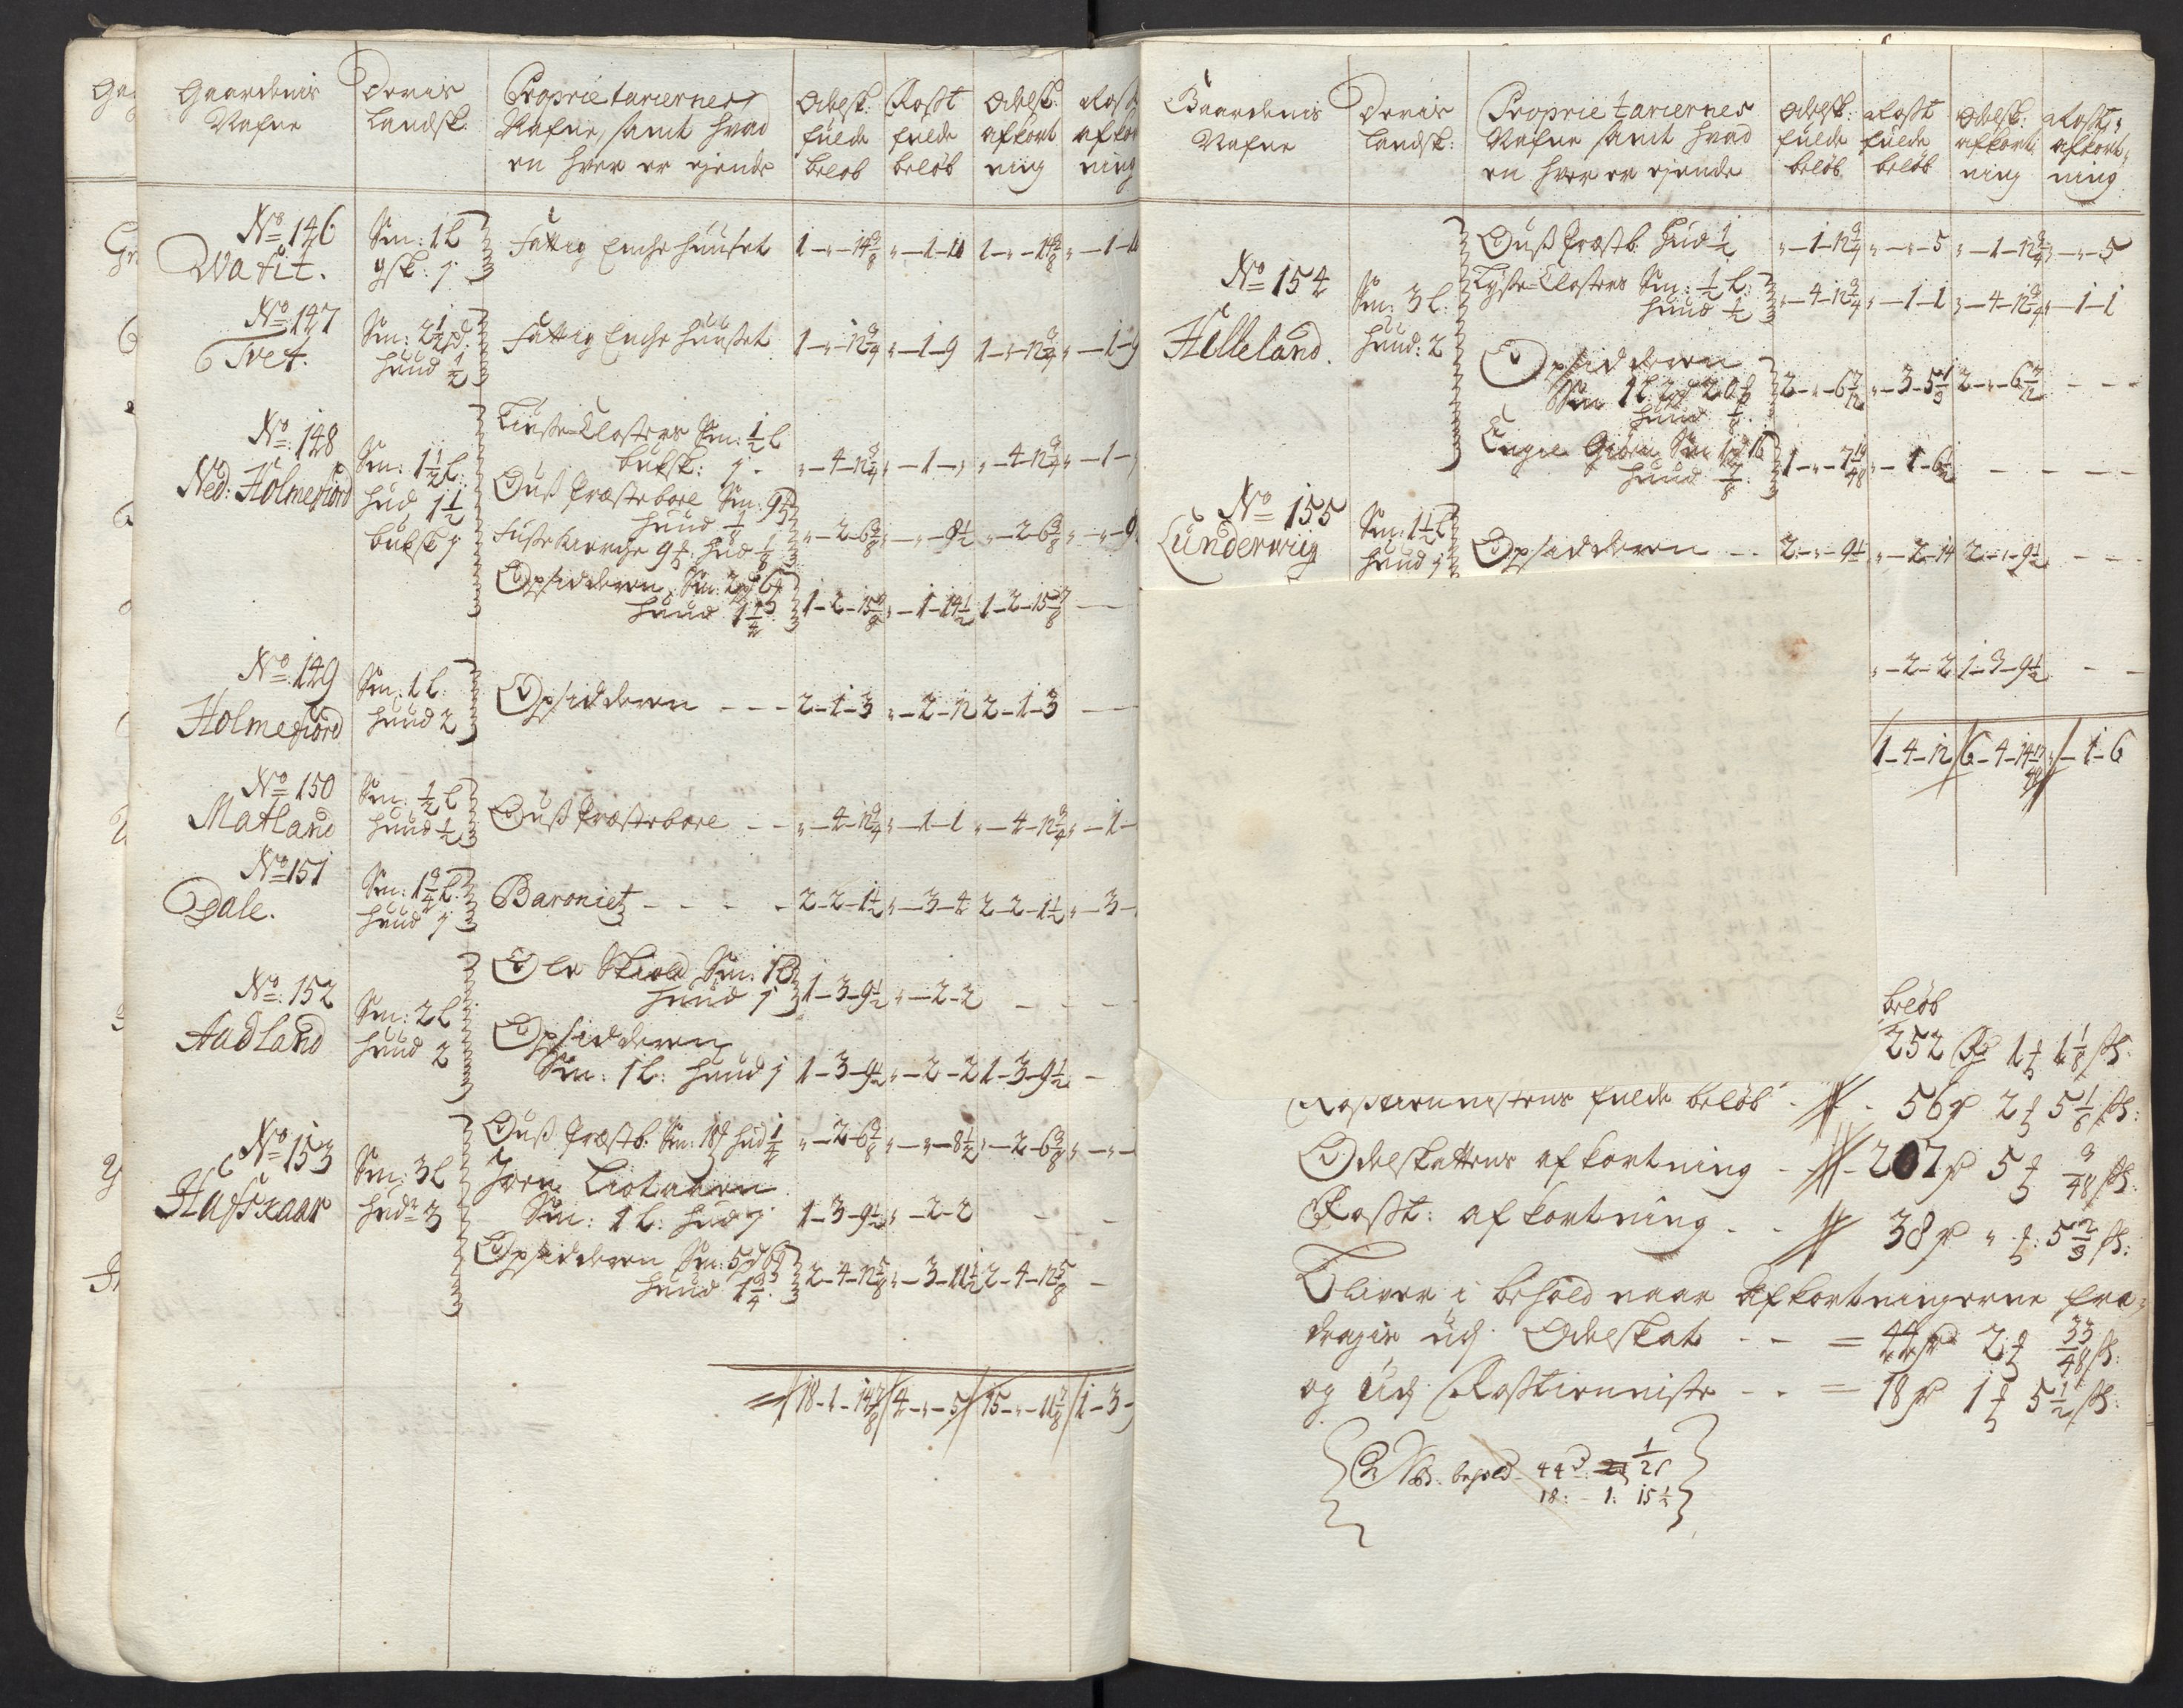 Gaardenis Nafne
Deris Landsk.
Proprietariernes Nafne, samt hvad en hver er ejende
Odelsk: fulde beløb
Rosst fulde beløb
Odelsk: afkort ning
Rost afkor ning
No 146 Wafit.
Sm: 1 L
gsk: j
Fattig Enche Huuset 1-"-14 3/8 "-1-11 1-"-14 3/8 "-1-11
No 147 Tvet.
Sm: 2 1/2
huud 1/2
Fattig Enche Huuset 1-"-12 3/4 "-1-9 1-"-12 3/4 "-1-9
No 148 Ned: Holmefiord
Sm: 1 1/2 L:
hud 1 1/2
buksk j
Liusse-Closters Sm: 1/2 L
buksk: j - "-4-12 3/4 "-1-" "-4-12 3/4 "-1-
Ouss Præstebole Sm: 9
huud 1/8
Fusse Kierche 9 hud 1/8 "-2-6 3/8 "-"-8 1/2 "-2-6 3/8 "-"-
Opsidderen, Sm: 2 6
huud 1 1/4 1-2-15 7/8 "-1-14 1/2 1-2-15 7/8
No 149 Holmefiord
Sm: 1 L:
huud 2
Opsidderen - - - 2-1-3 "-2-12 2-1-3
No 150 Matland
Sm: 1/2 L
huud 1/2
Ouss Præstebole - - "-4-12 3/4 "-1-1 "-4-12 3/4 "-1-
No 151 Dale.
Sm: 1 3/4 L:
huud j
Baroniet - - - - 2-2-1 1/2 "-3-4 2-2-1 1/2 "-3-
No: 152 Aadland
Sm: 2 L
huud 2
Ole Skiold Sm: 1 L
huud j 1-3-9 1/2 "-2-2 - -
Opsidderen
Sm: 1 L: huud j 1-3-9 1/2 "-2-2 1-3-9 1/2 -
No 153 Hafskaar
Sm: 3 L
hud 3
Ouss Præstb: Sm: 18 hud 1/4 "-2-6 3/8 "-"-8 1/2 "-2-6 3/8 "-"-
Jørn Liotaaen
Sm: 1 L: hud j 1-3-9 1/2 "-2-2 - -
Opsidderen Sm: 5 6
huud 1 3/4 2-4-12 5/8 "-3-11 1/2 2-4-12 5/8 -
= 18-1-14 7/8 4-"-5 15-"-11 7/8 1-3-
Gaardenis Nafne
Deris Landsk:
Proprietariernes Nafne samt hvad en hver er ejende
Odelsk: fulde beløb
Rosst fulde beløb
Odelsk: afkort ning
Rosst: afkort ning
No 154 Helleland.
Sm: 3 L:
huud: 2
Ouss Præstb. hud 1/2 "-1-12 3/4 "-"-5 "-1-12 3/4 "-"-5
Lysse-Closters Sm: 1/2 L:
huud 1/2 "-4-12 3/4 "-1-1 "-4-12 3/4 "-1-1
Opsidderen
Sm 1 L 2 20
huud 1/8 2-"-6 7/12 "-3-5 1/3 2-"-6 7/12 - - -
Engel Giøen Sm 16
huud 7/8 1-"-7 19/48 "-1-6 1/2 - - - -
No 155 Lunderwiig
Sm: 1 1/2 L
huud j
Opsidderen - - 2-"-9 1/2 "-2-14 2-"-9 1/2 - -
"-2-2 1-3-9 1/2 - -
1-4-12 6-4-14 "-1-6
beløb
252 Rd 1 1 1/8 s:
Rosstiennistens fulde beløb - 56 2 5 1/6 s:
Odelskattens afkortning - 207 5 9/48 s:
Rosst: afkortning - - 38 " 5 2/3 s:
Bliver i behold naar Afkortningerne fra
dragis udj Odelskat - - = 44 2 33/48 s:
og Udj Rosstienniste - - = 18 1 5 1/2 s:
NB. behold 44 1/2
18: - 1: 15 1/2